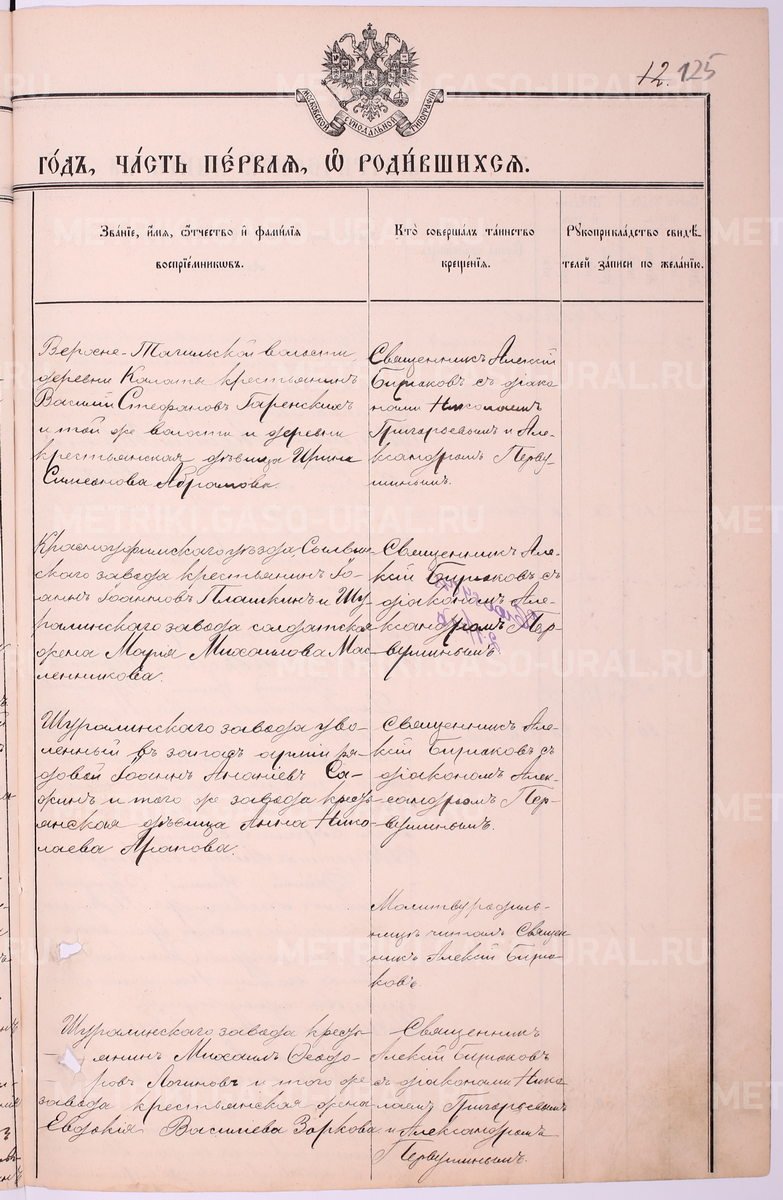 12. 125
МОСКОВСКОЙ СѴНОДАЛЬНОЙ ТИПОГРАФІИ
ГО́ДЪ, ЧА́СТЬ ПЕ́РВАЯ, Ѽ РОДИ́ВШИХСЯ.
Зва́нїе, и҆́мя, ѻ҆́тчество и҆ фами́лїя
воспрїе́мникѡвъ.
Кто̀ соверша́лъ та́инство
креще́нїя.
Рꙋкоприкла́дство свидѣ́-
телей за́писи по жела́нїю.
Верхне-Тагильской волости,
деревни Калаты крестьянинъ
Василій Стефановъ Гаренскихъ
и той же волости и деревни
крестьянская дѣвица Ирина
Симеонова Абрамова.
Священникъ Алексій
Бирюковъ съ діако-
нами Николаемъ
Григорьевымъ и Але-
ксандромъ Перву-
шинымъ.
Красноуфимскаго уѣзда Сылвин-
скаго завода крестьянинъ Іо-
аннъ Іоанновъ Плашкинъ и Шу-
ралинскаго завода солдатская
жена Марія Михаилова Мас-
ленникова.
Священникъ Але-
ксій Бирюковъ съ
діакономъ Але-
ксандромъ Пер-
вушинымъ.
Шуралинскаго завода уво-
ленный въ запасъ арміи ря-
довой Іоаннъ Ананіевъ Са-
жинъ и того же завода кресть-
янская дѣвица Анна Нико-
лаева Арапова.
Священникъ Але-
ксій Бирюковъ съ
діакономъ Алек-
сандромъ Пер-
вушинымъ.
Молитву родиль-
ницѣ читалъ Священ-
никъ Алексій Бирю-
ковъ.
Шуралинскаго завода кресть-
янинъ Михаилъ Ѳеодо-
ровъ Логиновъ и того же
завода крестьянская жена
Евдокія Васильева Зоркова.
Священникъ
Алексій Бирюковъ
съ діаконами Нико-
лаемъ Григорьевымъ
и Александромъ
Первушинымъ.
METRIKI.GASO-URAL.RU